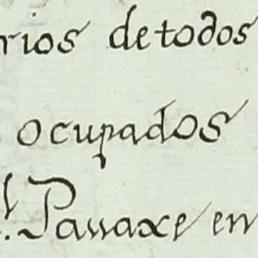 rios de todos
ocupados
l. Parraxe en